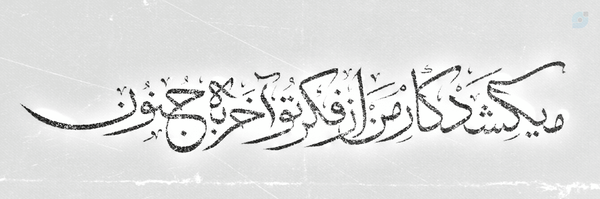 میکشد کار من از فکر تو آخر به جنون